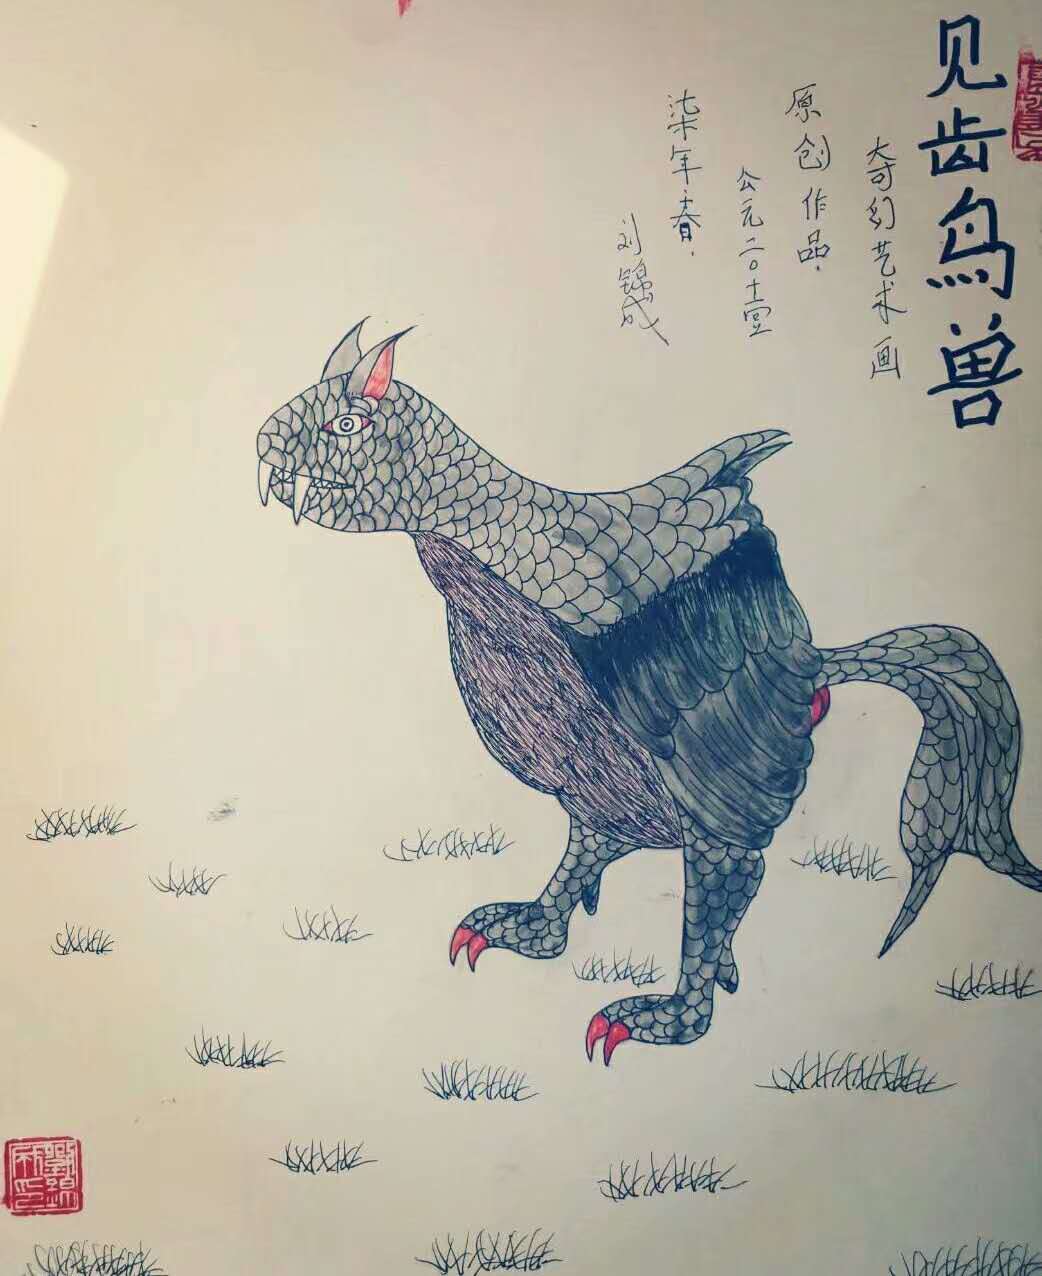 见齿鸟兽
奇幻艺术画
原创作品.
公元二〇壹
柒年春.
刘锦成